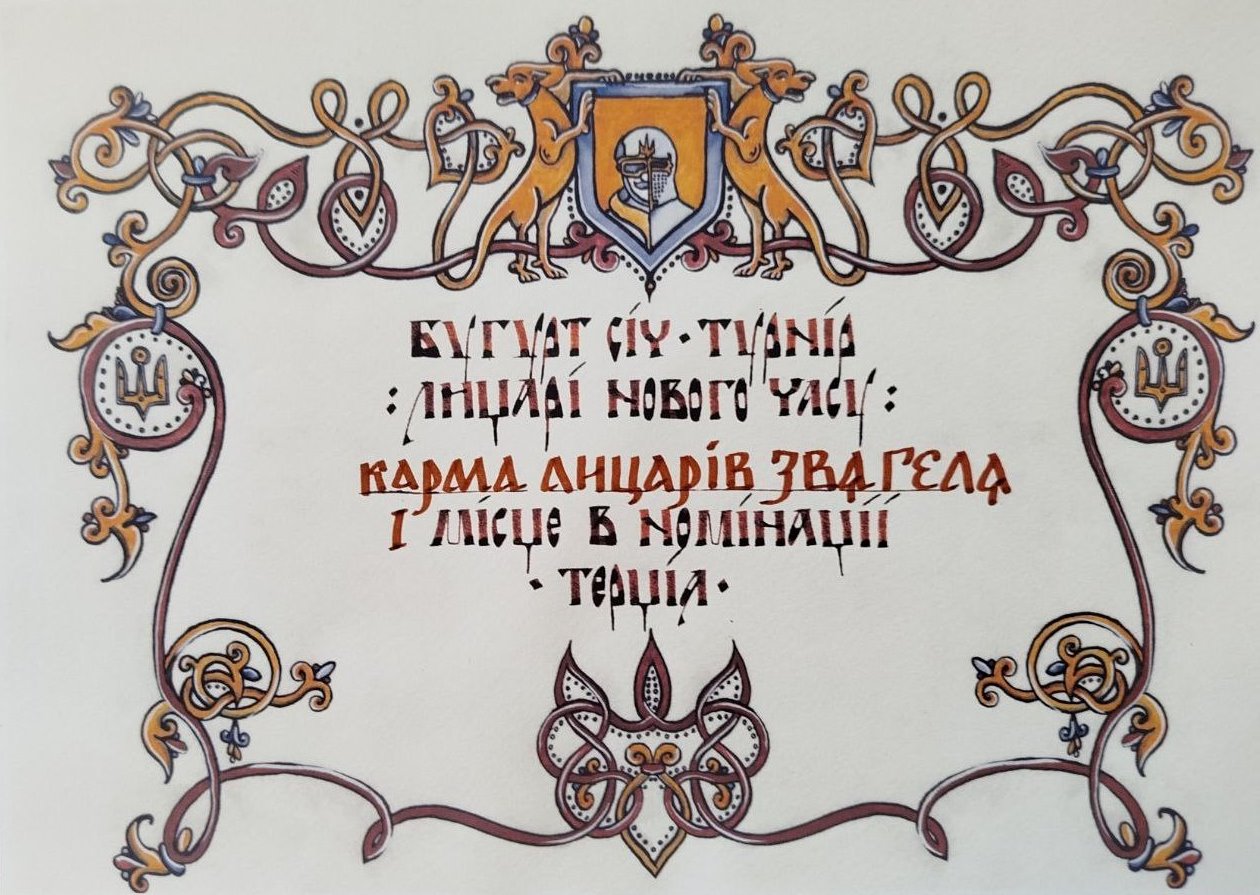 БУГУРТ СІЧ · ТУРНІР
: ЛИЦАРІ НОВОГО ЧАСУ :
КАРМА ЛИЦАРІВ ЗВЯГЕЛЯ
I МІСЦЕ В НОМІНАЦІЇ
· ТЕРЦІЯ ·